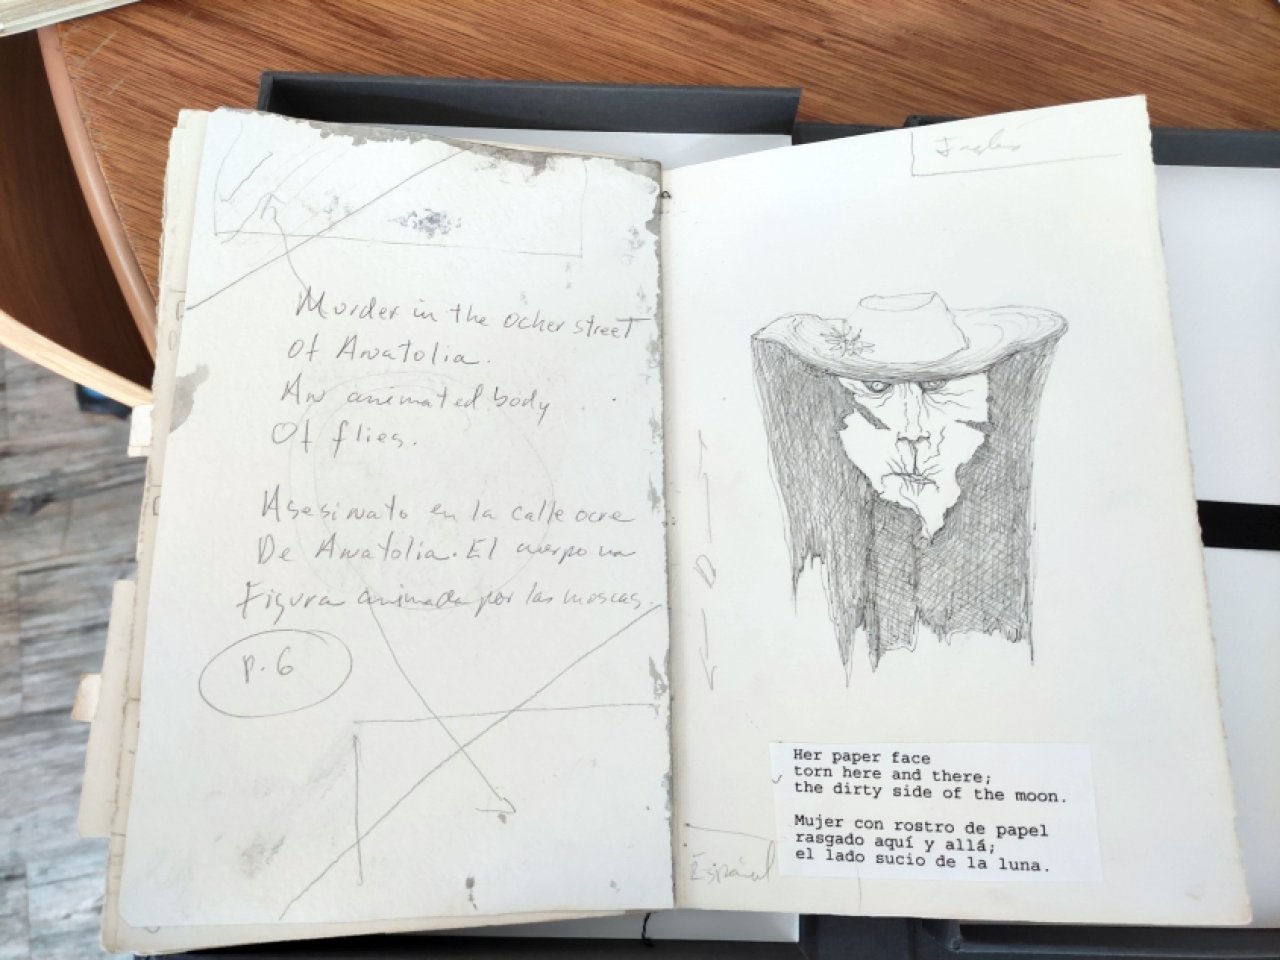 Murder in the ocher street
Of Anatolia.
An animated body
Of flies.
Asesinato en la calle ocre
De Anatolia. El cuerpo una
Figura animada por las moscas.
p. 6
Inglés
D
Her paper face
torn here and there;
the dirty side of the moon.
Mujer con rostro de papel
rasgado aquí y allá;
el lado sucio de la luna.
Español